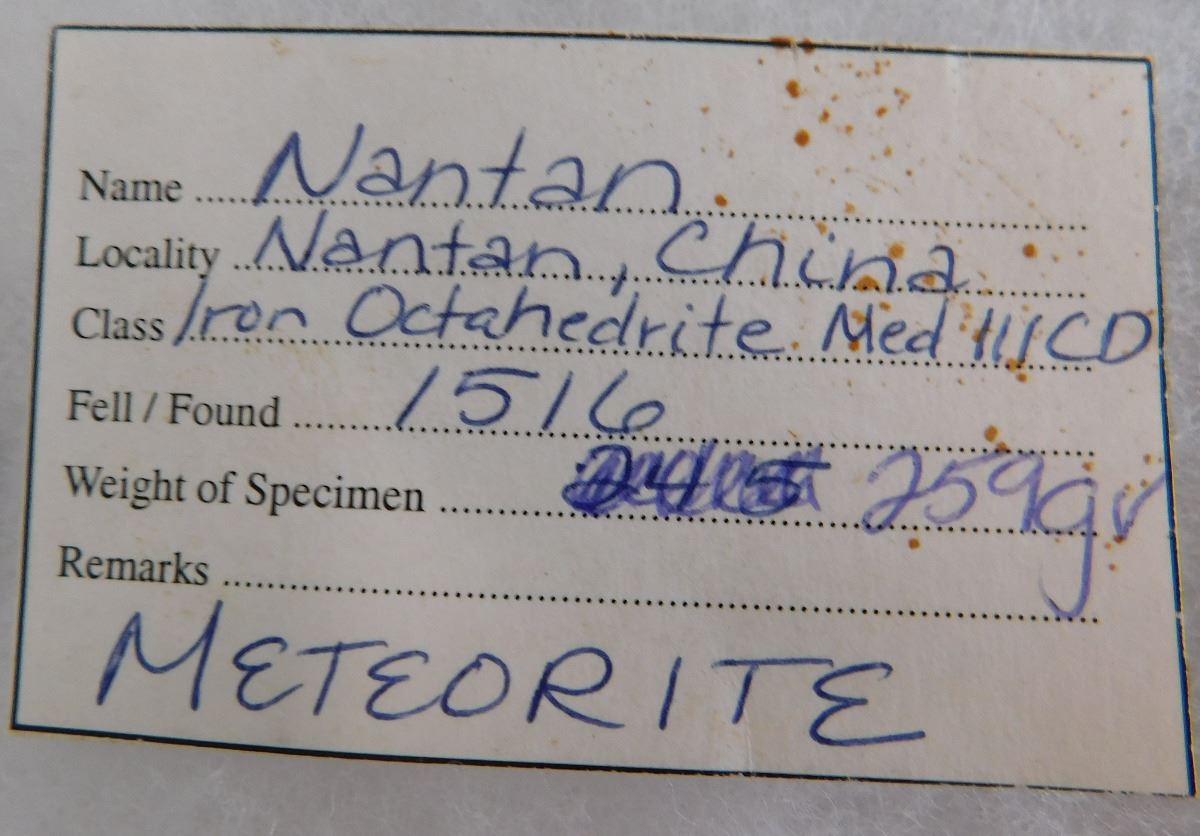 Name ..... Nantan
Locality ... Nantan, China
Class Iron Octahedrite Med IIICD
Fell / Found ..... 1516
Weight of Specimen ..... 259gr
Remarks .....
METEORITE